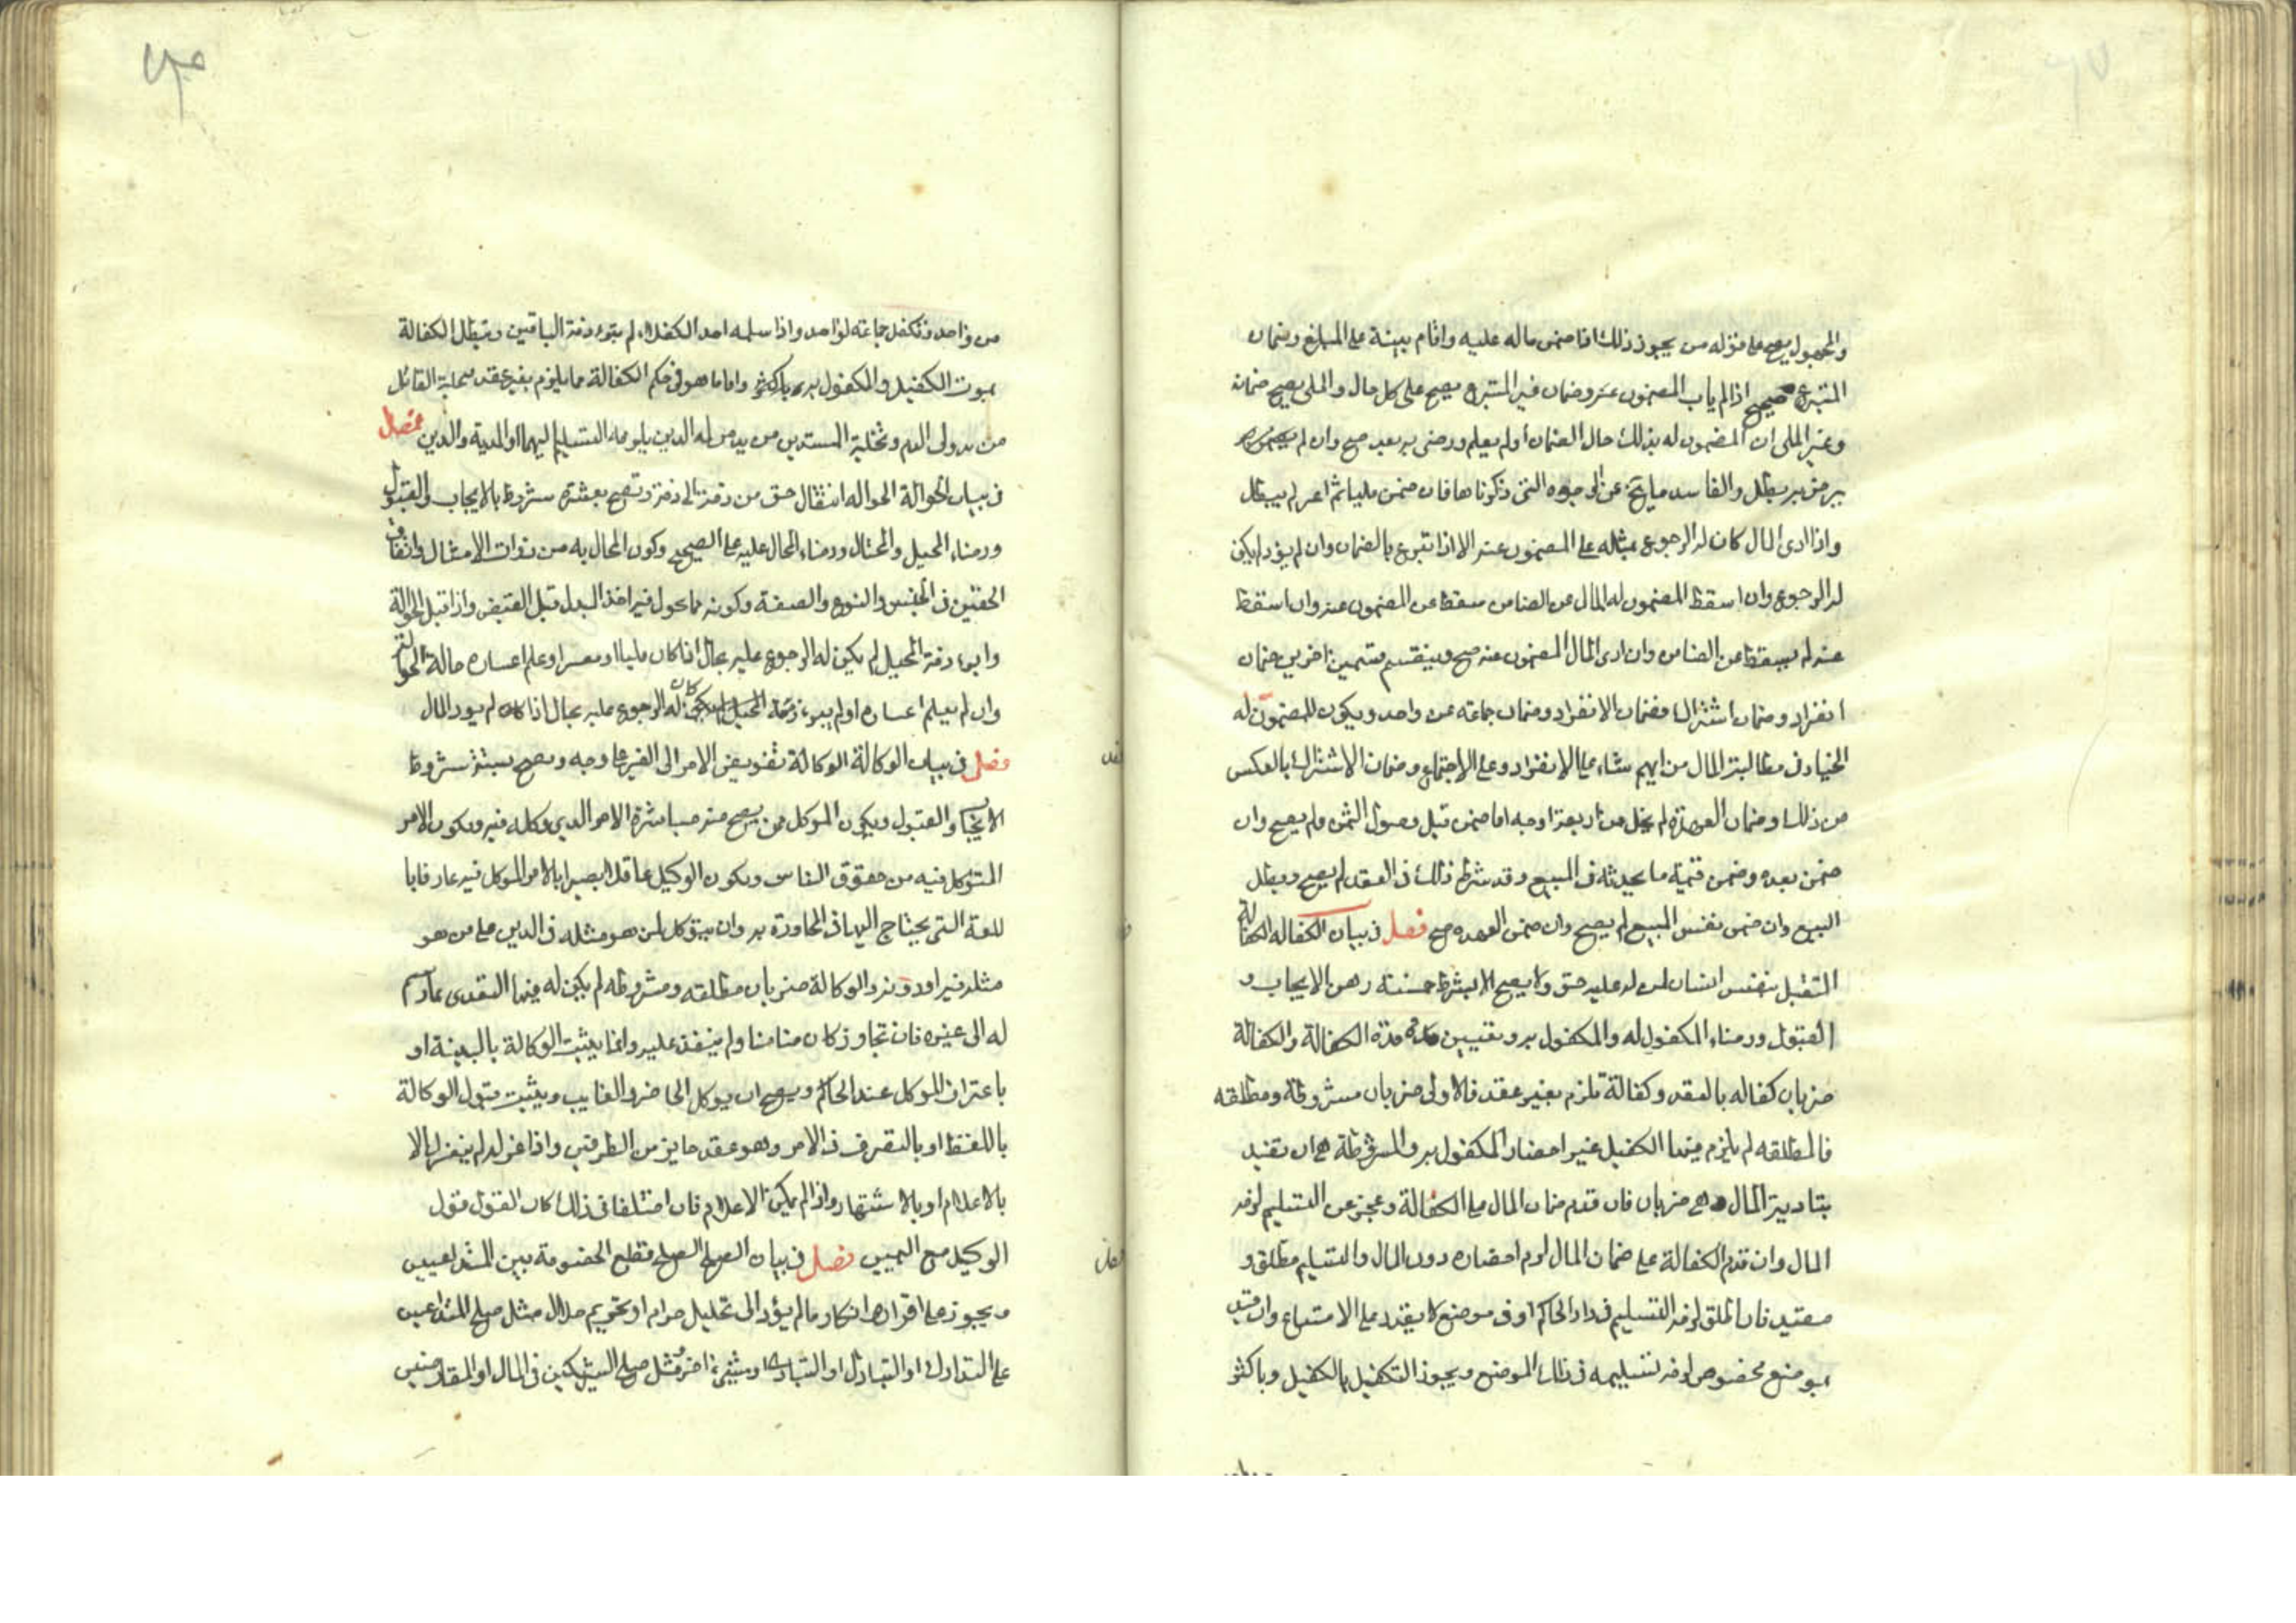 والمجهول يصح على قوله من يجوز ذلك اذا ضمن ماله عليه واقام بينة على المبلغ وضمان
المتبرع صحيح اذا لم ياب المضمون عنه وضمان غير المتبرع يصح على كل حال والملى يصح ضمانه
وغير الملى ان المضمون له بذلك حال الضمان او لم يعلم ورضى به بعد صح وان لم
يرض به بطل والفاسد ما يخ عن الوجوه التى ذكرناها فان ضمن مليا ثم اعسر لم يبطل
واذا ادى المال كان له الرجوع بمثله على المضمون عنه الا اذا تبرع بالضمان وان لم يؤد لم يكن
له الرجوع وان اسقط المضمون له المال عن الضامن سقط عن المضمون عنه وان اسقط
عنه لم يسقط عن الضامن وان ادى المال المضمون عنه صح وينقسم قسمين اخرين ضمان
انفراد وضمان اشتراك فضمان الانفراد وضمان جماعة عن واحد ويكون للمضمون له
الخيار فى مطالبة المال من ايهم شاء على الانفراد وعلى الاجتماع وضمان الاشتراك بالعكس
من ذلك وضمان العهدة لم يخل من اربعة اوجه اما ضمن قبل وصول الثمن ولم يصح وان
ضمن بعده وضمن قيمة ما يحدثه فى المبيع وقد شرط ذلك فى العقد لم يصح ويبطل
البيع وان ضمن نفس المبيع لم يصح وان ضمن العهده صح فصل فى بيان الكفاله الكفالة
التقبل بنفس انسان لمن له عليه حق ولا يصح الا بشرط خمسة وهى الايجاب و
القبول ورضاء المكفول له والمكفول به وتعيين مدة الكفالة والكفالة
ضربان كفاله بالعقد وكفالة تلزم بغير عقد فالاولى ضربان مشروطة ومطلقه
فالمطلقه لم يلزم فيها الكفيل غير احضار المكفول به والمشروطة هى ان تقيد
بتادية المال وهى ضربان فان قدم ضمان المال على الكفالة وعجز عن التسليم لزمه
المال وان قدم الكفالة على ضمان المال لزم احضاره دون المال والتسليم مطلق و
مقيد فان اطلق لزمه التسليم فى دار الحاكم او فى موضع لا يقدر على الامتناع وان قيد
بموضع مخصوص لزمه تسليمه فى ذلك الموضع ويجوز التكفيل بالكفيل وباكثر
من واحد وتكفل جماعة لواحد واذا سلمه احد الكفلاء لم يبرء ذمة الباقين وتبطل الكفالة
بموت الكفيل والمكفول به واما ما هو فى حكم الكفالة مما يلزم بغير عقد تخلية القاتل
من يد ولى الدم وتخلية المستدين من يد من له الدين يلزمه التسليم اليهما او الدية والدين فصل
فى بيان الحوالة الحواله انتقال حق من ذمة الى ذمة وتصح بعشرة شروط بالايجاب والقبول
ورضاء المحيل والمحتال ورضاء المحال عليه على الصحيح وكون المحال به من ذوات الامثال واتفاق
الحقين فى الجنس والنوع والصفة وكونه مما يجوز فيه اخذ البدل قبل القبض واذا قبل الحوالة
وابراء ذمة المحيل لم يكن له الرجوع عليه بحال اذا كان مليا او معسرا وعلم اعساره حالة الحوالة
وان لم يعلم اعساره او لم يبرء ذمة المحيل كان له الرجوع عليه بحال اذا لم يود المال
فصل فى بيان الوكالة الوكالة تفويض الامر الى الغير على وجه ويصح بستة شروط
الايجاب والقبول ويكون الموكل من يصح منه مباشرة الامر الذى وكله فيه ويكون الامر
المتوكل فيه من حقوق الناس ويكون الوكيل عاقلا بصيرا بالامر الموكل فيه عارفا با
للغة التى يحتاج اليها فى المحاورة به وان يتوكل لمن هو مثله فى الدين على من هو
مثله فيه او دونه والوكالة ضربان مطلقه ومشروطه لم يكن له فيها التعدى عما رسم
له الى غيره فان تجاوز كان ضامنا ولم ينفذ عليه وانما يثبت الوكالة بالبينة او
باعتراف الموكل عند الحاكم ويصح ان يوكل الحاضر والغايب ويثبت قبول الوكالة
باللفظ او بالتصرف فى الامر وهو عقد جايز من الطرفين واذا عزله لم ينعزل الا
بالاعلام او بالاشتهار واذا لم يمكن الاعلام فان اختلفا فى ذلك كان القول قول
الوكيل مع اليمين فصل فى بيان الصلح الصلح قطع الخصومة بين المتداعيين
ويجوز على اقرار وانكار ما لم يؤد الى تحليل حرام او تحريم حلال مثل صلح المتداعيين
على التدارك او التبادل او التبارء وبشىء اخر مثل صلح الشريكين فى المال او المقارضين